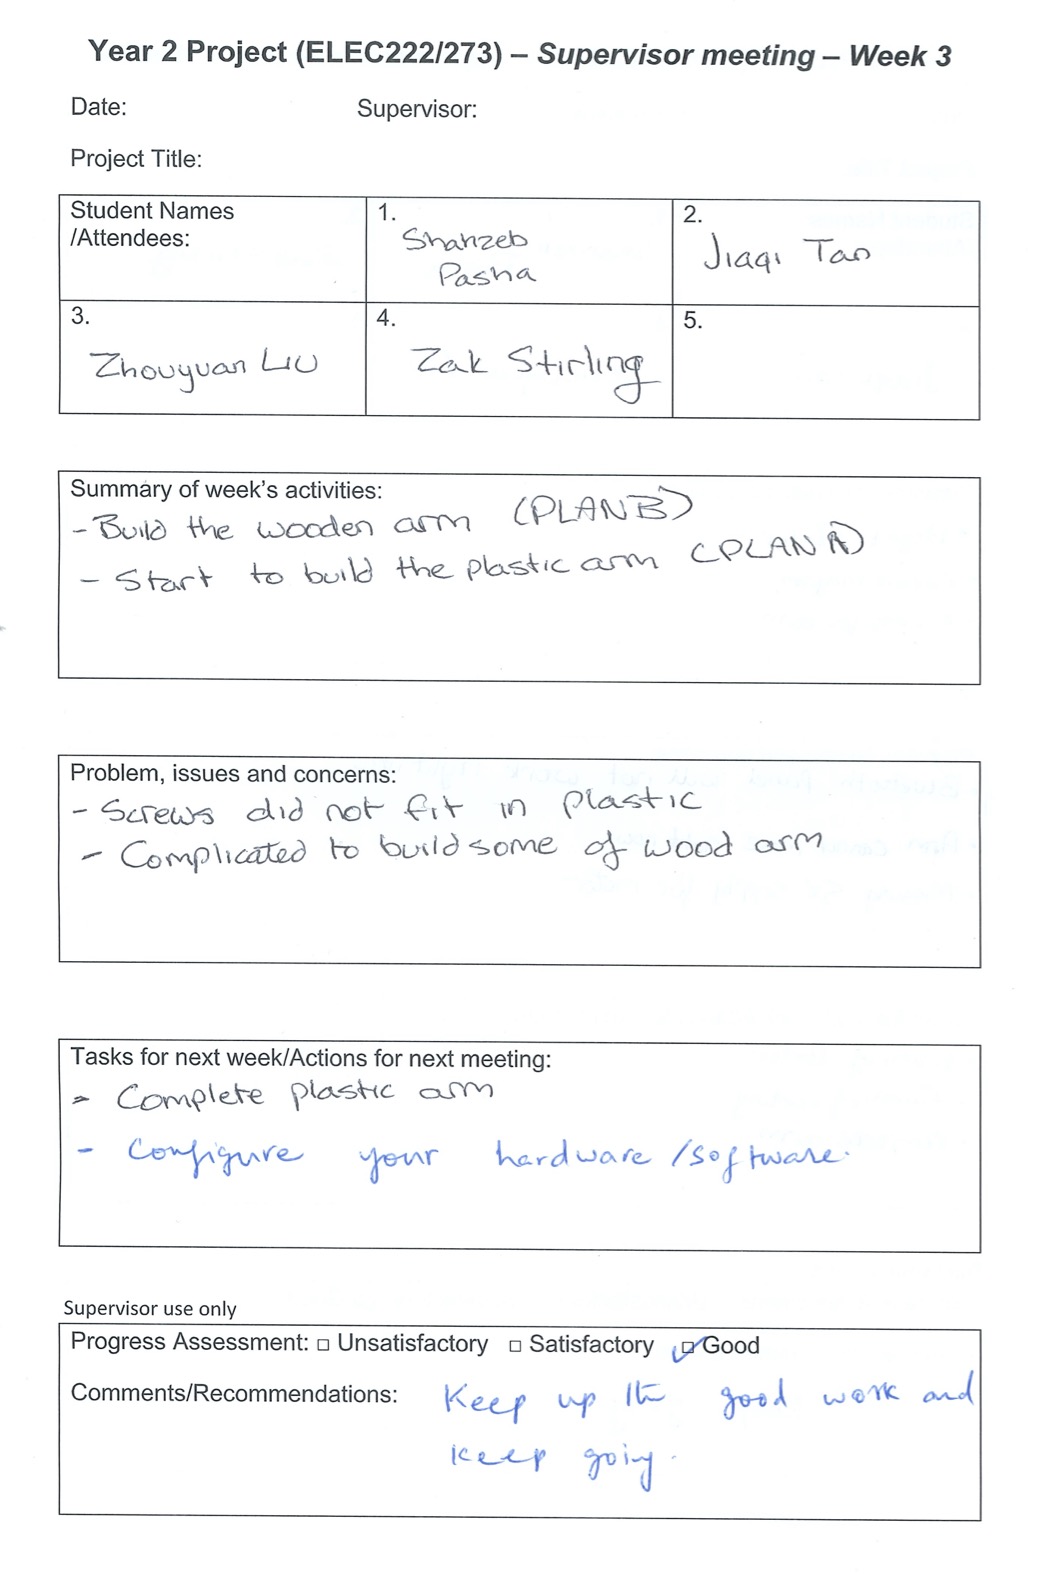 Year 2 Project (ELEC222/273) – Supervisor meeting – Week 3
Date: Supervisor:
Project Title:
Student Names
/Attendees:
1.
Shahzeb
Pasha
2.
Jiaqi Tan
3.
Zhouyuan Liu
4.
Zak Stirling
5.
Summary of week's activities:
- Build the wooden arm (PLAN B)
- Start to build the plastic arm (PLAN A)
Problem, issues and concerns:
- Screws did not fit in plastic
- Complicated to build some of wood arm
Tasks for next week/Actions for next meeting:
- Complete plastic arm
- Configure your hardware/software.
Supervisor use only
Progress Assessment: □ Unsatisfactory □ Satisfactory □ Good
Comments/Recommendations: Keep up the good work and
keep going.